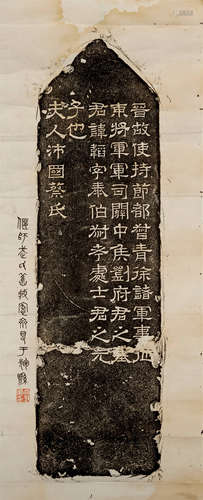 晉故使持節都督青徐諸軍事征
東將軍軍司關中侯劉府君之墓
君諱韜字泰伯考處士君之元
子也
夫人沛國蔡氏
偃師氏舊